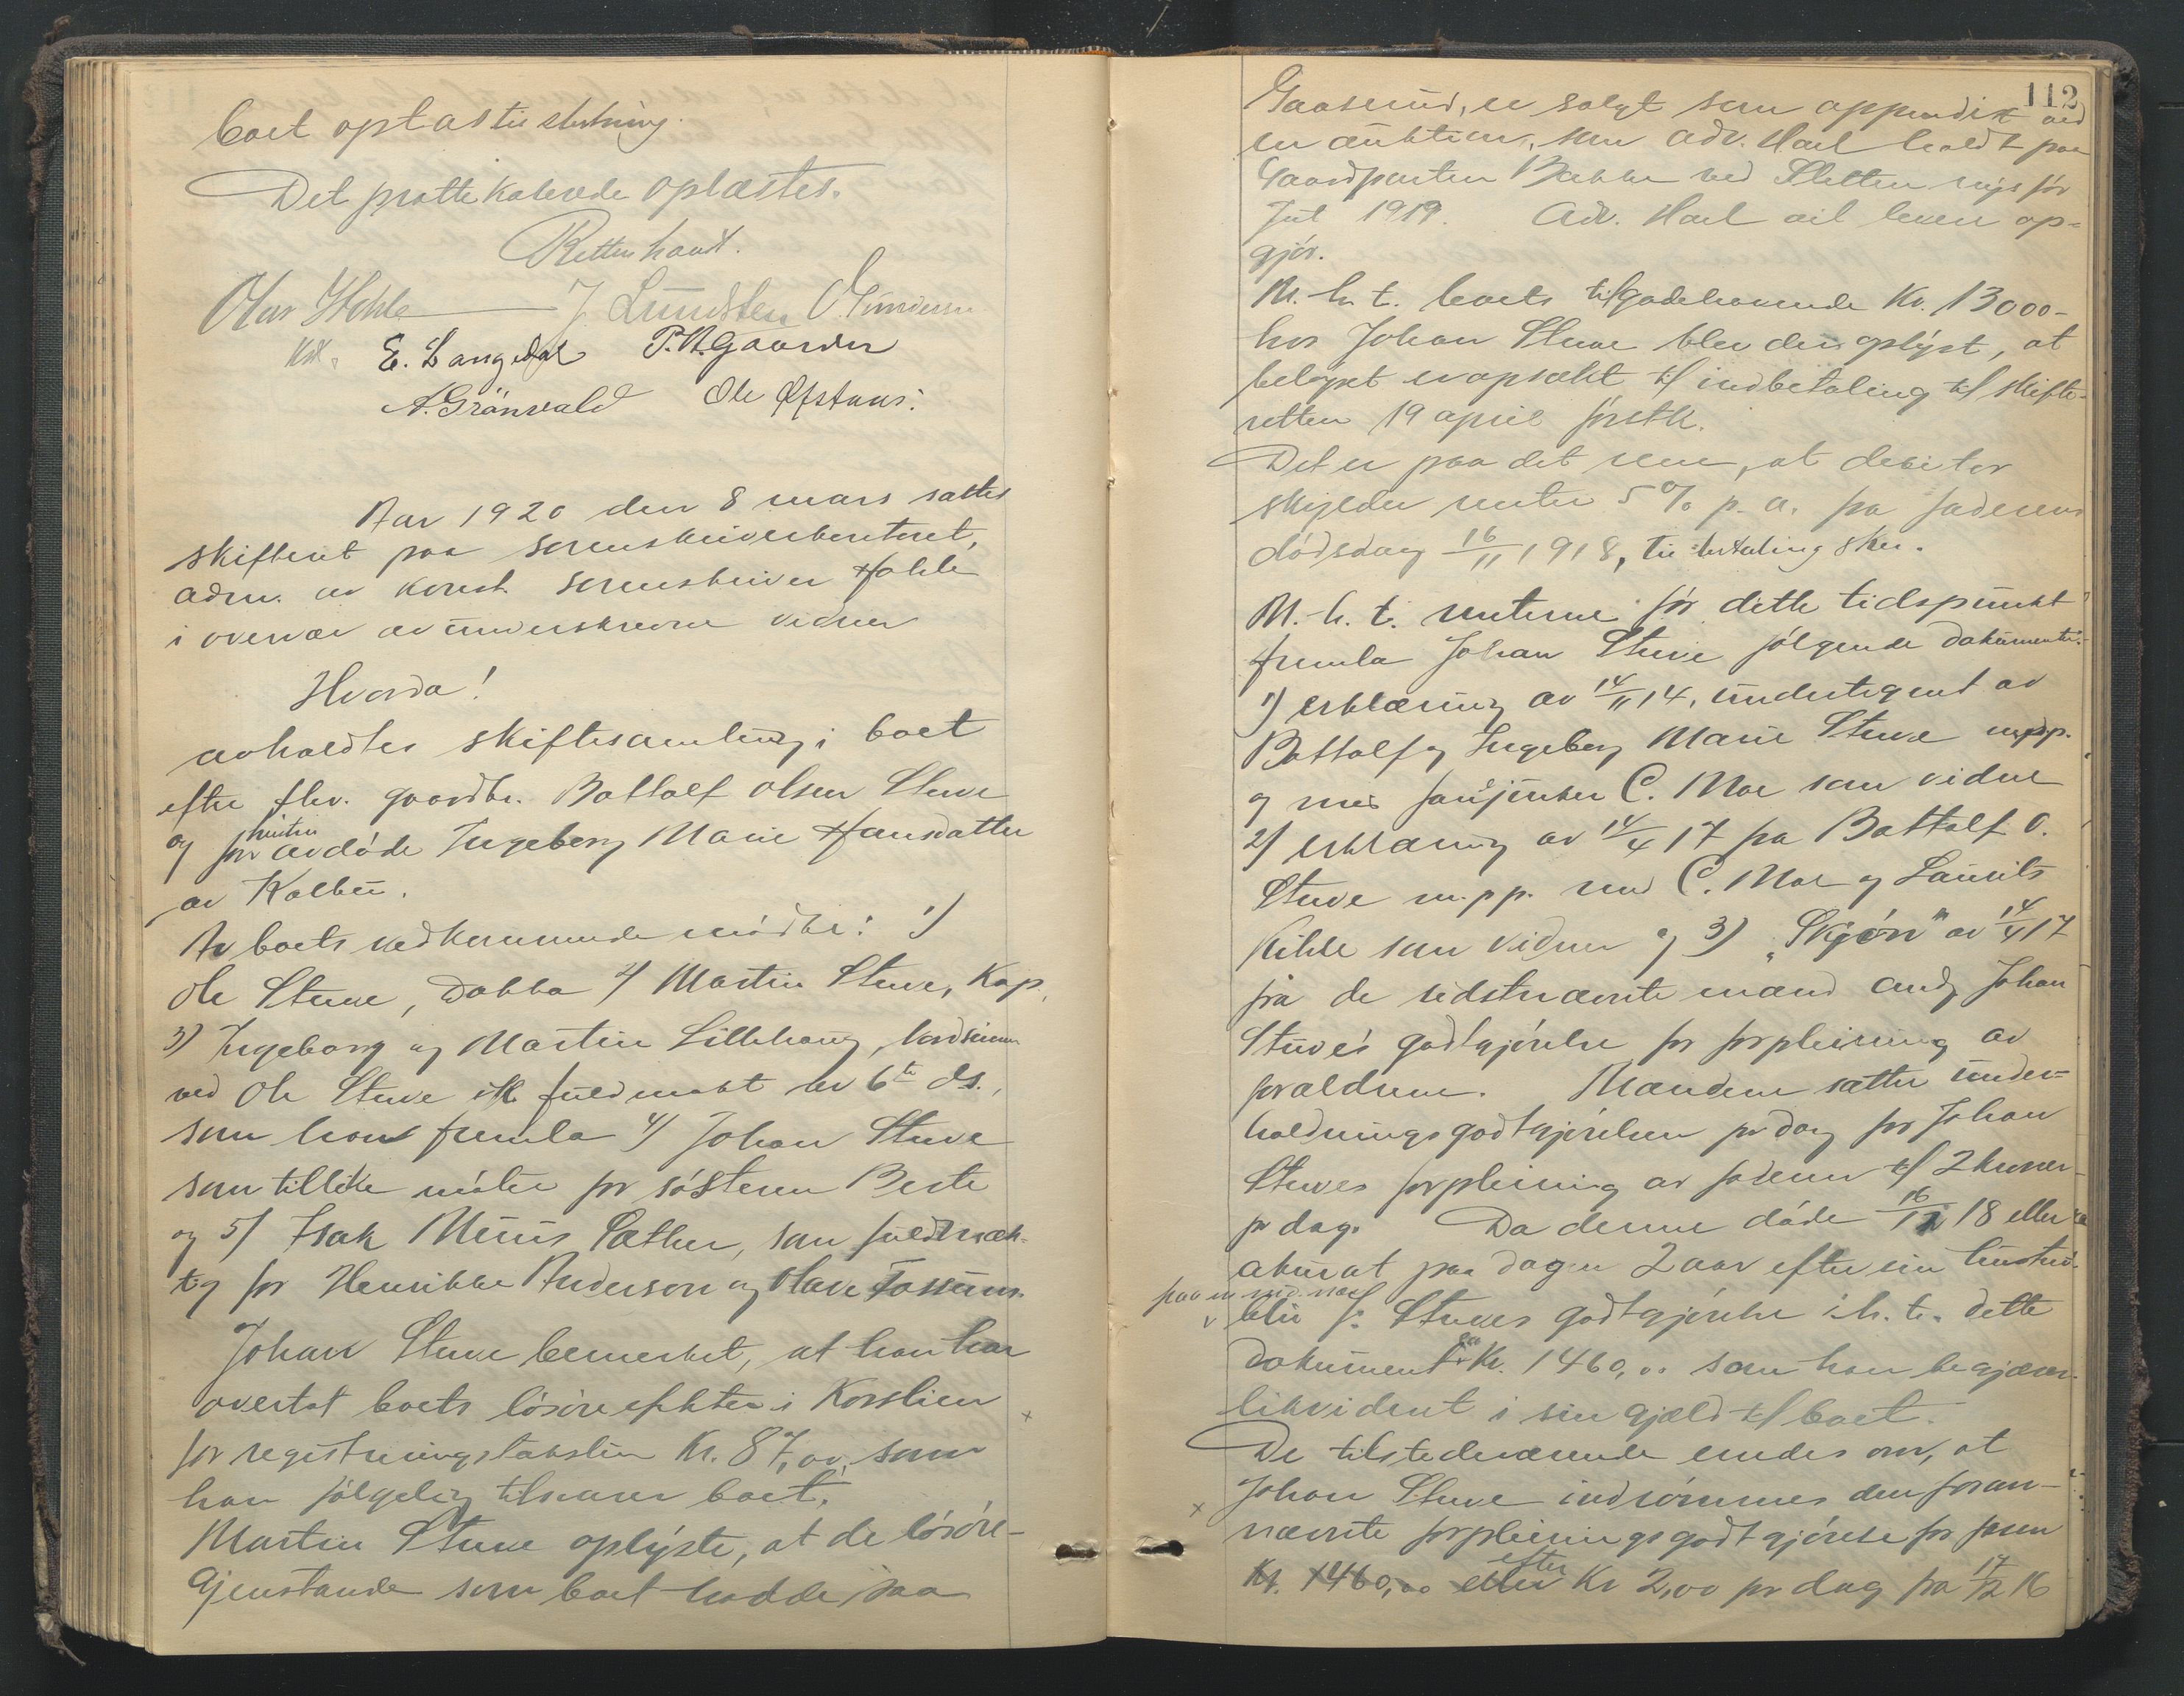 boet optas til slutning.
Det protokolerede oplæstes.
Retten hævet.
Olav Hohle J. Lundsten O. Gundersen
Kst. E. Langedal P. N. Gaarder
A. Grönvald Ole Ofstaas.
Aar 1920 den 8 mars sattes
skifteret paa sorenskriverkontoret,
adm. av konst. sorenskriver Hohle
i overvær av underskrevne vidner
Hvorda!
avholdtes skiftesamling i boet
efter fhv. gaardbr. Bottolf Olsen Stuve
og hustru avdøde Ingeborg Marie Hansdatter
av Kolbu.
Av boets vedkommende mødte: 1)
Ole Stuve, Dokka 2) Martin Stuve, Kap,
3) Ingeborg og Martin Lillehaug, Nordsinnen
ved Ole Stuve ifl fuldmakt av 6te ds.,
som han fremla 4) Johan Stuve
som tillike møter for søsteren Berte
og 5) Isak Sæther, som fuldmæk-
tig for Henrikke Anderson og Olave Fossum.
Johan Stuve bemerket, at han har
overtat boets løsøreeffekter i Korslien
for registreringstaksten Kr. 87,00, som
han følgelig tilsvarer boet.
Martin Stuve oplyste, at de løsøre-
gjenstande som boet hadde paa
112
Gaaserud, er solgt som appendix ved
en auktion, som adv. Hoel holdt paa
Gaardparten Bakke ved Sletten før
Jul 1919. Adv. Hoel vil levere op-
gjør.
M. h. t. boets tilgodehavende Kr. 13000-
hos Johan Stuve blev det oplyst, at
beløpet er opsakt til indbetaling til skifte-
retten 19 april førstk.
Det er paa det rene, at debitor
skylder renter 5% p. a. fra faderens
dødsdag 16/11 1918, til betaling sker.
M. h. t. renterne før dette tidspunkt
fremla Johan Stuve følgende dokumenter:
1) erklæring av 14/11 14, undertegnet av
Bottolf og Ingeborg Marie Stuve m.p.p.
og med C. Moe som vidne
2) erklæring av 14/4 17 fra Bottolf O.
Stuve m.p.p. med C. Moe og Laurits
Kihle som vidner og 3) "Skjøn" av 14/4 17
fra de sidstnævnte mænd ang. Johan
Stuve's godtgjørelse for forpleining av
forældrene. Mændene satte under-
holdningsgodtgjørelsen pr dag for Johan
Stuves forpleining av faderen til 2 kroner
pr dag. Da denne døde 16/12 18 eller
akurat paa dagen 2 aar efter sin hustru
blir J. Stuves godtgjørelse i h. t. dette
dokument Kr. 1460,00 som han begjærer
likvidert i sin gjæld til boet.
De tilstedeværende enedes om, at
Johan Stuve indrømmes den foran-
nævnte forpleiningsgodtgjørelse for faren
Kr. 1460,00 efter Kr 2,00 pr dag fra 17/12 16